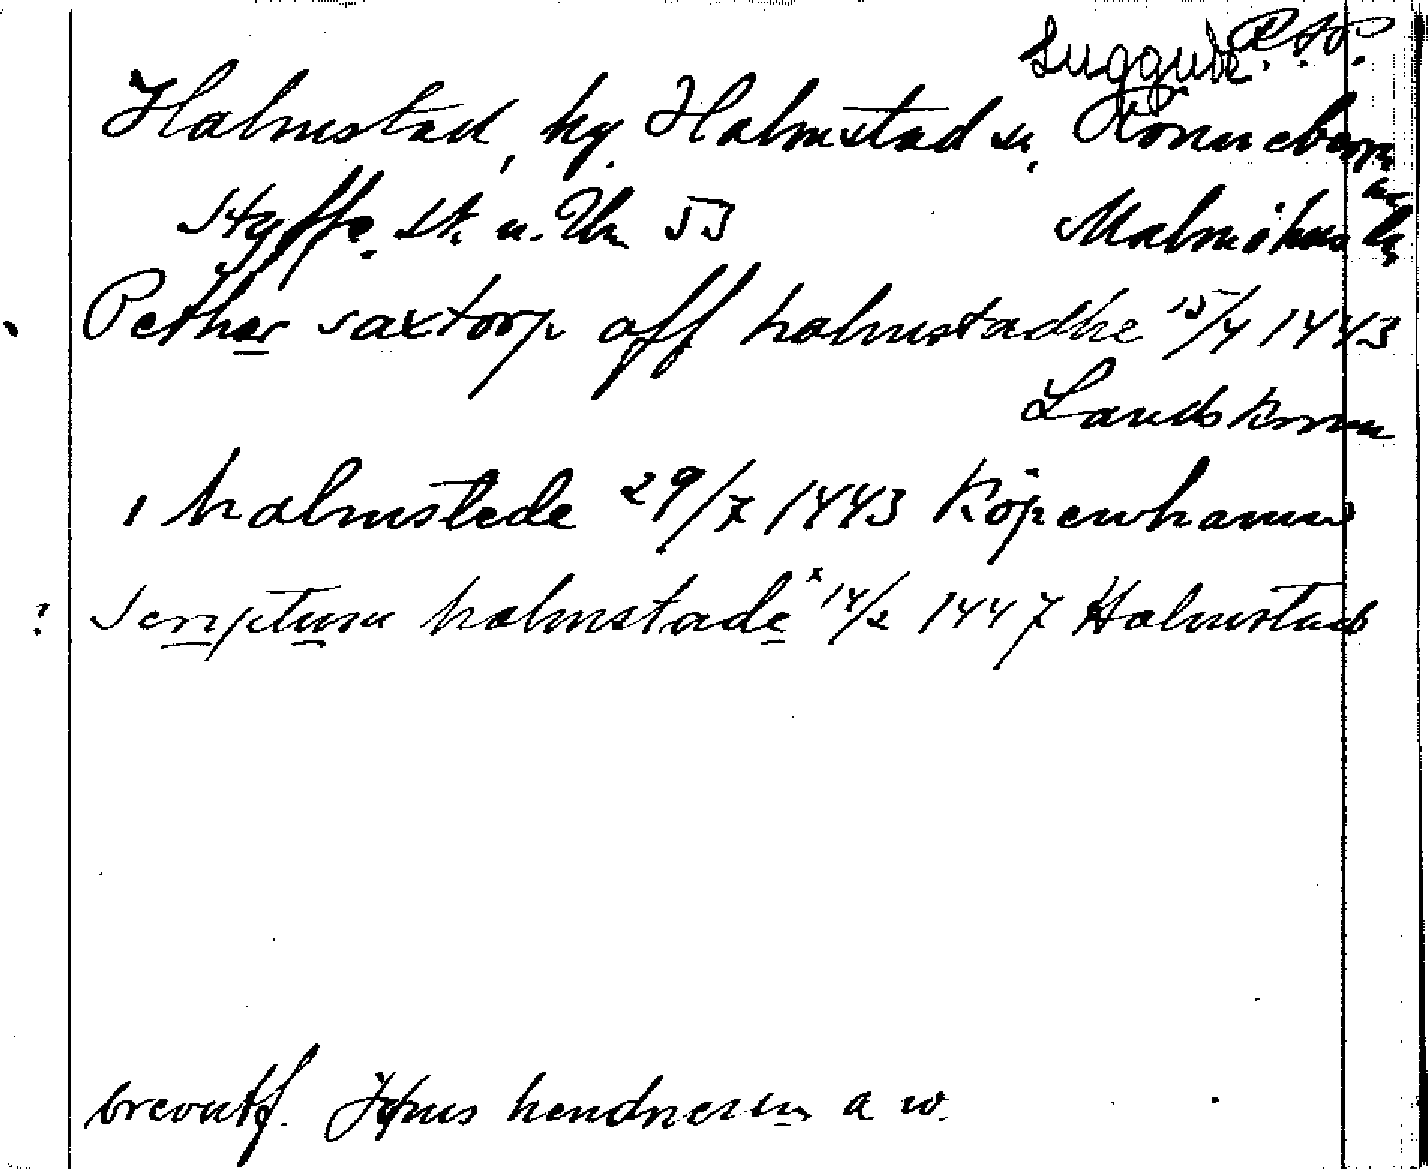 Luggude R.A.P.
Halmstad, by, Halmstad sn, Rönnebergs
Styffe Sk. u. Un 53 Malmöhus län
Pether saxtorp aff halmstadhe 15/4 1443
Landskrona
i halmstede 29/7 1443 Köpenhamn
? Scriptum halmstade x 14/2 1447 Halmstad
brevutf. Jens hendricsen a w.